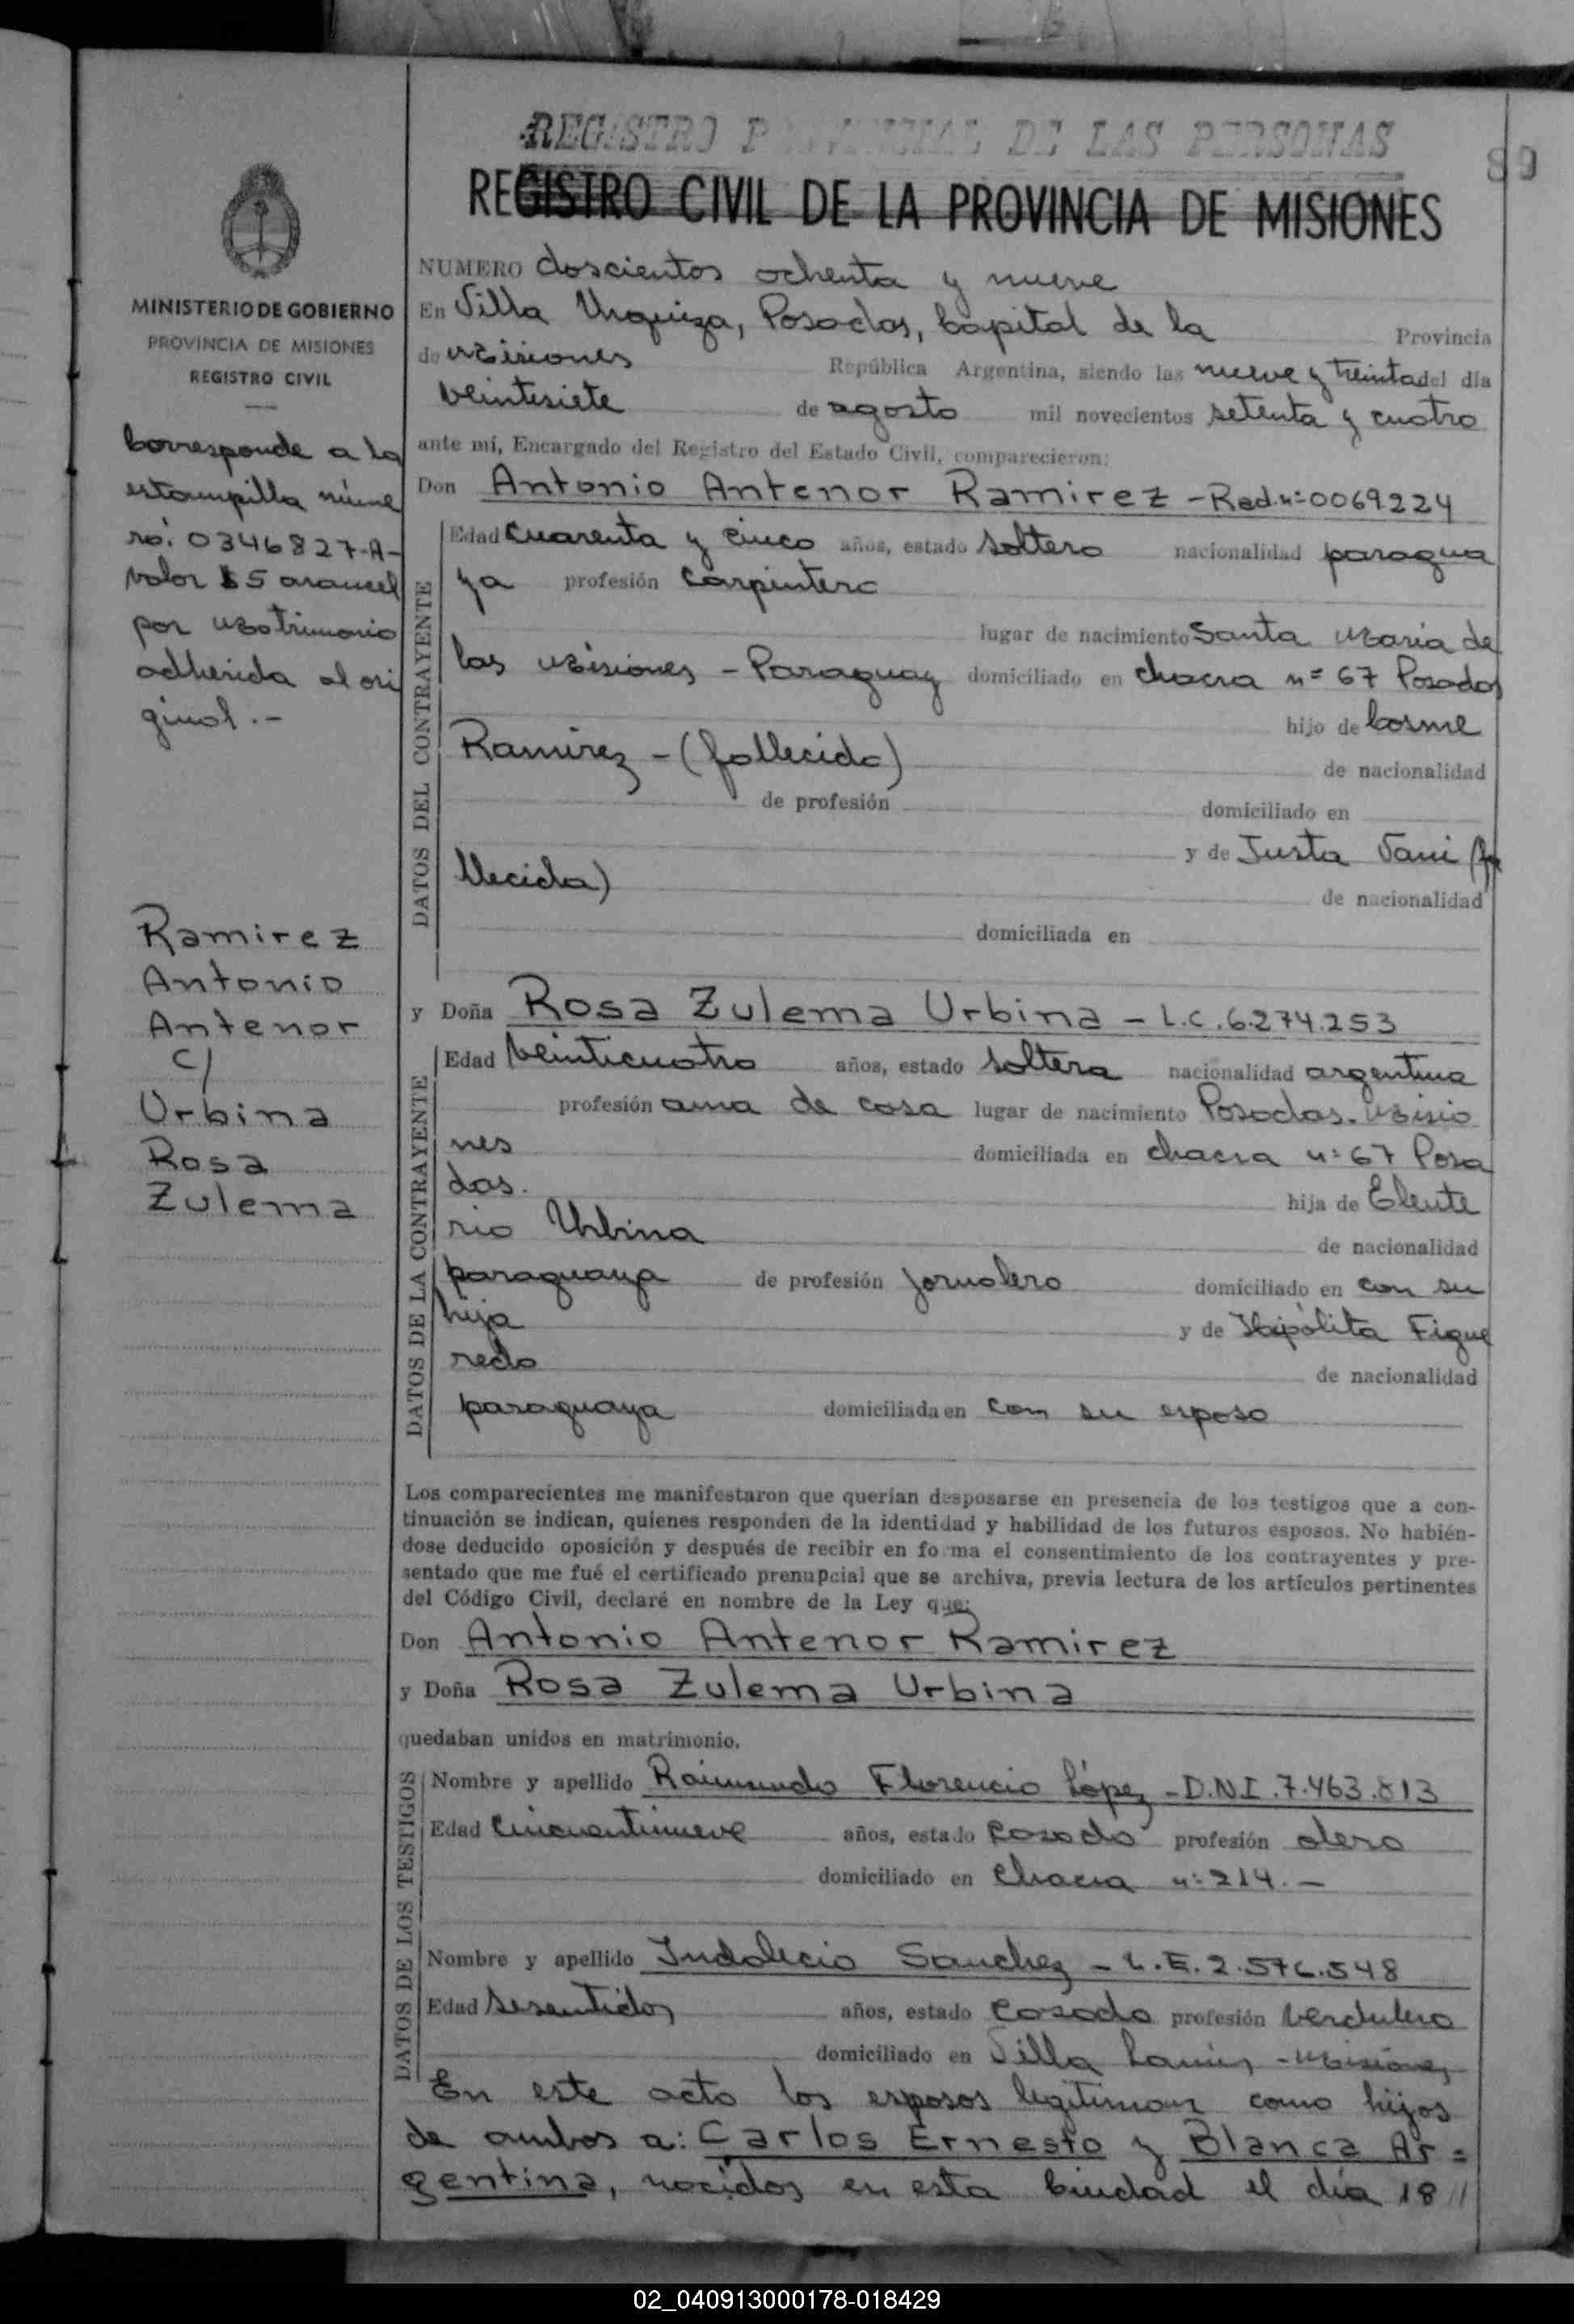 REGISTRO PROVINCIAL DE LAS PERSONAS
89
REGISTRO CIVIL DE LA PROVINCIA DE MISIONES
MINISTERIO DE GOBIERNO
PROVINCIA DE MISIONES
REGISTRO CIVIL
Corresponde a la
estampilla núme
ro: 0346827-A-
valor $5 arancel
por Matrimonio
adherida al ori
ginal.-
Ramirez
Antonio
Antenor
c/
Urbina
Rosa
Zulema
NUMERO doscientos ochenta y nueve
En Villa Urquiza, Posadas, Capital de la Provincia
de Misiones República Argentina, siendo las nueve y treinta del día
veintisiete de agosto mil novecientos setenta y cuatro
ante mí, Encargado del Registro del Estado Civil, comparecieron:
Don Antonio Antenor Ramirez - Rad. nº 0069224
DATOS DEL CONTRAYENTE
Edad cuarenta y cinco años, estado soltero nacionalidad paragua
ya profesión carpintero
lugar de nacimiento Santa Maria de
las Misiones - Paraguay domiciliado en chacra nº 67 Posadas
hijo de Cosme
Ramirez - (fallecido)
de nacionalidad
de profesión domiciliado en
y de Justa Vani (fa
llecida)
de nacionalidad
domiciliada en
y Doña Rosa Zulema Urbina - L.C. 6.274.253
DATOS DE LA CONTRAYENTE
Edad veinticuatro años, estado soltera nacionalidad argentina
profesión ama de casa lugar de nacimiento Posadas. Misio
nes domiciliada en chacra nº 67 Posa
das. hija de Eleute
rio Urbina
de nacionalidad
paraguaya de profesión jornalero domiciliado en con su
hija y de Hipólita Figue
redo
de nacionalidad
paraguaya domiciliada en con su esposo
Los comparecientes me manifestaron que querían desposarse en presencia de los testigos que a con-
tinuación se indican, quienes responden de la identidad y habilidad de los futuros esposos. No habién-
dose deducido oposición y después de recibir en forma el consentimiento de los contrayentes y pre-
sentado que me fué el certificado prenupcial que se archiva, previa lectura de los artículos pertinentes
del Código Civil, declaré en nombre de la Ley que:
Don Antonio Antenor Ramirez
y Doña Rosa Zulema Urbina
quedaban unidos en matrimonio.
DATOS DE LOS TESTIGOS
Nombre y apellido Raimundo Florencio López - D.N.I. 7.463.813
Edad cincuentinueve años, estado casado profesión olero
domiciliado en chacra nº 214.-
Nombre y apellido Indalecio Sanchez - L.E. 2.576.548
Edad sesentidos años, estado casado profesión verdulero
domiciliado en Villa Lanús - Misiones
En este acto los esposos legitiman como hijos
de ambos a: Carlos Ernesto y Blanca Ar=
gentina, nacidos en esta Ciudad el día 18 //
02_040913000178-018429